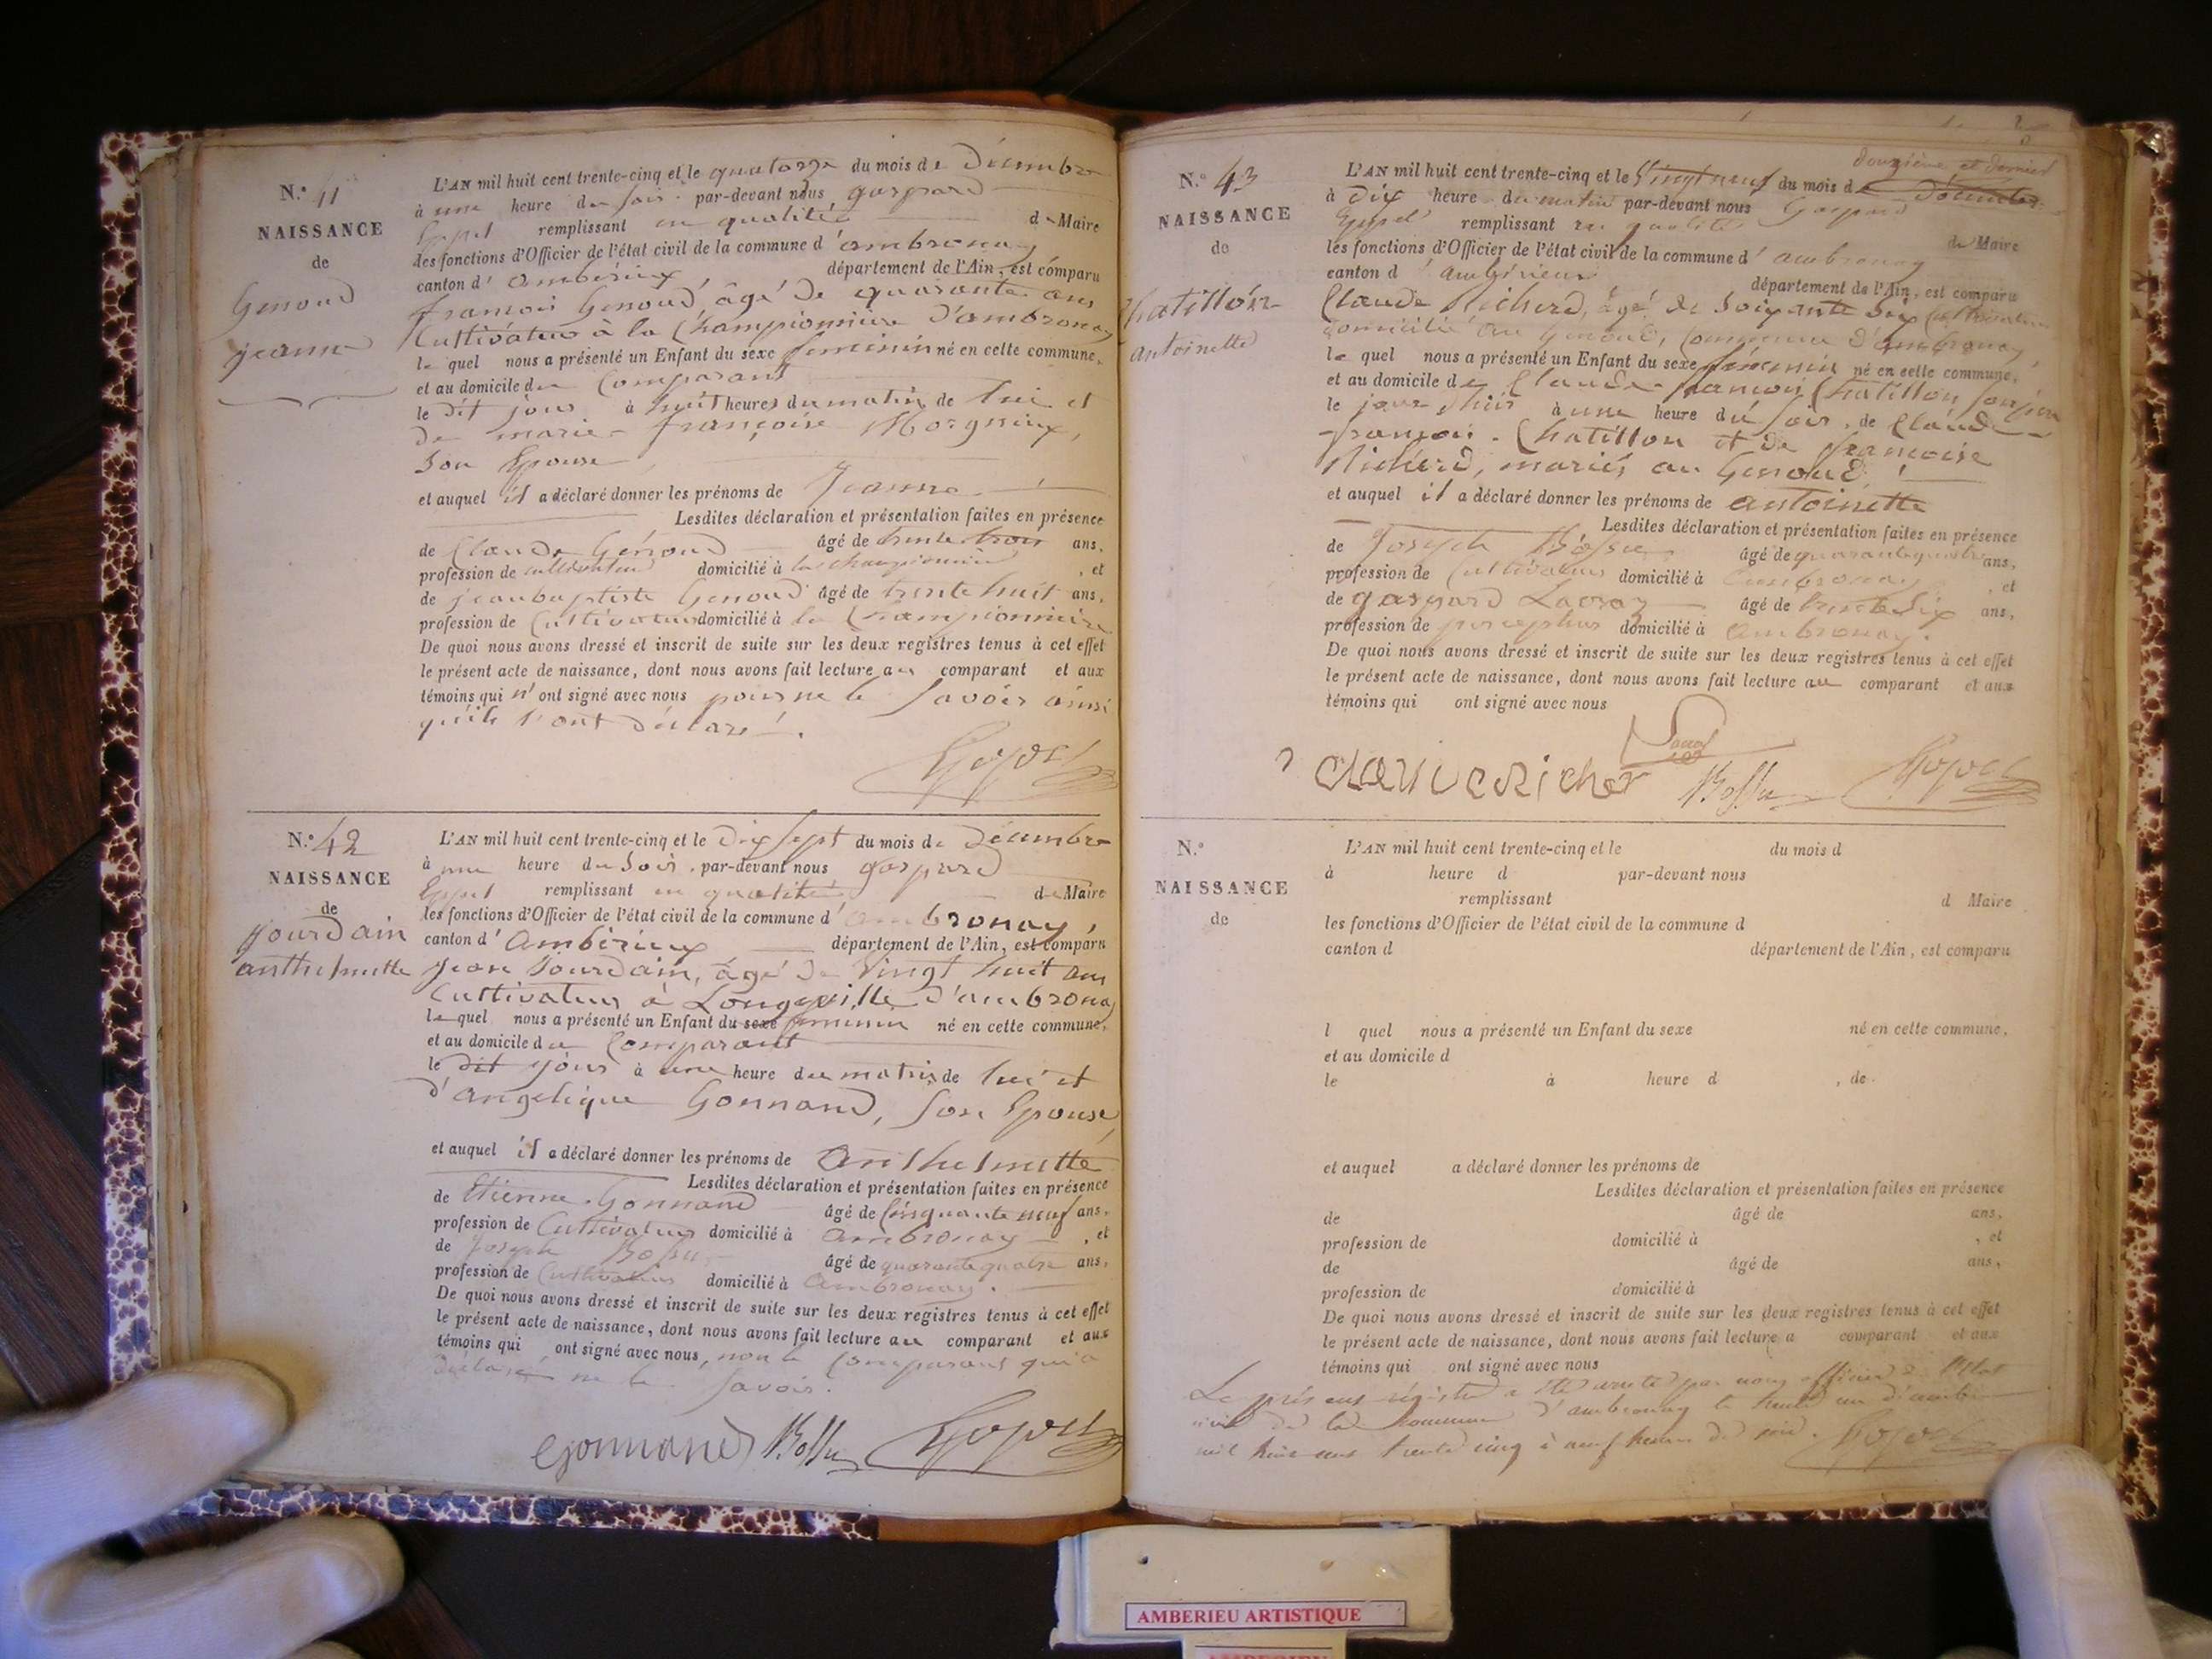 N.° 41
NAISSANCE
de
Genoud
jeanne
L'AN mil huit cent trente-cinq et le quatorze du mois de Décembre
à une heure du soir par-devant nous gaspard
remplissant en qualité de Maire
les fonctions d'Officier de l'état civil de la commune d'ambronay
canton d'ambérieux, département de l'Ain, est comparu
françois Genoud, âgé de quarante ans
Cultivateur à la Championnière d'ambronay
lequel nous a présenté un Enfant du sexe feminin né en cette commune,
et au domicile du Comparant
le dit jour à huit heures du matin, de lui et
de marie françoise Morgnieux,
Son Epouse
et auquel il a déclaré donner les prénoms de Jeanne
Lesdites déclaration et présentation faites en présence
de Claude Genoud âgé de trente trois ans,
profession de cultivateur domicilié à la championnière, et
de jean baptiste Genoud âgé de trente huit ans,
profession de Cultivateur domicilié à la Championnière
De quoi nous avons dressé et inscrit de suite sur les deux registres tenus à cet effet
le présent acte de naissance, dont nous avons fait lecture au comparant et aux
témoins qui n'ont signé avec nous pour ne le Savoir ainsi
qu'ils l'ont déclaré.
N.° 42
NAISSANCE
de
jourdain
anthelmette
L'AN mil huit cent trente-cinq et le Dix Sept du mois de Décembre
à une heure du Soir, par-devant nous gaspard
remplissant en qualité de Maire
les fonctions d'Officier de l'état civil de la commune d'ambronay,
canton d'ambérieux département de l'Ain, est comparu
Jean Jourdain, âgé de Vingt huit ans
Cultivateur à Longeville d'ambronay
lequel nous a présenté un Enfant du sexe feminin né en cette commune,
et au domicile du Comparant
le dit jour à une heure du matin, de lui et
d'angelique Gonnand, Son Epouse,
et auquel il a déclaré donner les prénoms de Anthelmette
Lesdites déclaration et présentation faites en présence
de Etienne Gonnand âgé de Cinquante neuf ans,
profession de Cultivateur domicilié à Ambronay, et
de Joseph Bossu âgé de quarante quatre ans,
profession de Cultivateur domicilié à Ambronay.
De quoi nous avons dressé et inscrit de suite sur les deux registres tenus à cet effet
le présent acte de naissance, dont nous avons fait lecture au comparant et aux
témoins qui ont signé avec nous, non le Comparant qui a
déclaré ne le Savoir.
Gonnand Bossu
N.° 43
NAISSANCE
de
Chatillon
antoinette
douzième et dernier
L'AN mil huit cent trente-cinq et le Vingt neuf du mois de Décembre
à Dix heure du matin par-devant nous Gaspard
remplissant en qualité de Maire
les fonctions d'Officier de l'état civil de la commune d'ambronay
canton d'ambérieux département de l'Ain, est comparu
Claude Richerd, âgé de Soixante Six Cultivateur
domicilié au Genoud, Commune d'ambronay
lequel nous a présenté un Enfant du sexe féminin né en cette commune,
et au domicile de Claude françois Chatillon
le jour d'hier à une heure du soir, de Claude
françois Chatillon et de françoise
Richerd, mariés au Genoud
et auquel il a déclaré donner les prénoms de antoinette
Lesdites déclaration et présentation faites en présence
de Joseph Bossu âgé de quarante quatre ans,
profession de Cultivateur domicilié à Ambronay, et
de gaspard Lacroy âgé de trente Six ans,
profession de percepteur domicilié à Ambronay.
De quoi nous avons dressé et inscrit de suite sur les deux registres tenus à cet effet
le présent acte de naissance, dont nous avons fait lecture au comparant et aux
témoins qui ont signé avec nous
Bossu
N.°
NAISSANCE
de
L'AN mil huit cent trente-cinq et le du mois d
à heure d par-devant nous
remplissant d Maire
les fonctions d'Officier de l'état civil de la commune d
canton d département de l'Ain, est comparu
l quel nous a présenté un Enfant du sexe né en cette commune,
et au domicile d
le à heure d , de
et auquel a déclaré donner les prénoms de
Lesdites déclaration et présentation faites en présence
de âgé de ans,
profession de domicilié à , et
de âgé de ans,
profession de domicilié à
De quoi nous avons dressé et inscrit de suite sur les deux registres tenus à cet effet
le présent acte de naissance, dont nous avons fait lecture a comparant et aux
témoins qui ont signé avec nous
Le présent régistre a été par nous officier de l'état
civil de la commune d'ambronay le trente un décembre
mil huit cent trente cinq à neuf heures du soir.
AMBERIEU ARTISTIQUE